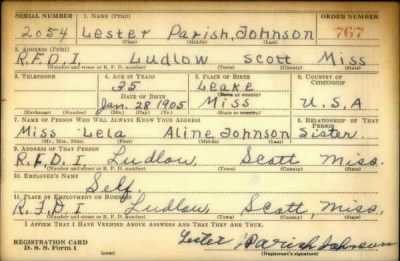 SERIAL NUMBER 1. NAME (Print) ORDER NUMBER
2054 Lester Parish Johnson 767
(First) (Middle) (Last)
2. ADDRESS (Print)
R.F.D.I Ludlow Scott Miss
(Number and street or R. F. D. number) (Town) (County) (State)
3. TELEPHONE 4. AGE IN YEARS 5. PLACE OF BIRTH 6. COUNTRY OF CITIZENSHIP
35 Leake
DATE OF BIRTH (Town or county)
Jan. 28 1905 Miss U.S.A
(Exchange) (Number) (Mo.) (Day) (Yr.) (State or country)
7. NAME OF PERSON WHO WILL ALWAYS KNOW YOUR ADDRESS 8. RELATIONSHIP OF THAT PERSON
Miss Lela Aline Johnson Sister
(Mr., Mrs., Miss) (First) (Middle) (Last)
9. ADDRESS OF THAT PERSON
R.F.D.I Ludlow Scott Miss.
(Number and street or R. F. D. number) (Town) (County) (State)
10. EMPLOYER'S NAME
Self.
11. PLACE OF EMPLOYMENT OR BUSINESS
R.F.D.I Ludlow, Scott, Miss.
(Number and street or R. F. D. number) (Town) (County) (State)
I AFFIRM THAT I HAVE VERIFIED ABOVE ANSWERS AND THAT THEY ARE TRUE.
REGISTRATION CARD Lester Parish Johnson
D. S. S. Form 1 (over) (Registrant's signature)